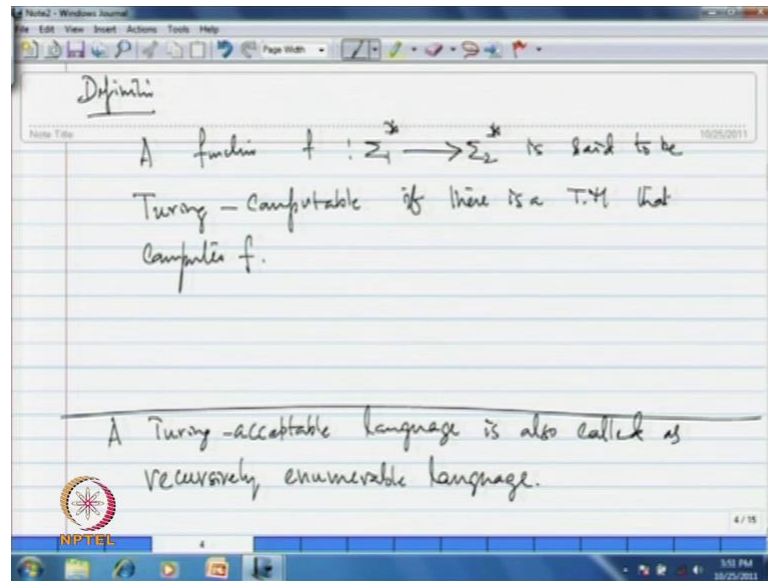 Note2 - Windows Journal
File Edit View Insert Actions Tools Help
Page Width
Definition
Note Title
10/25/2011
A function f : Σ₁* → Σ₂* is said to be
Turing - Computable if there is a T.M that
Computes f.
A Turing - acceptable language is also called as
recursively enumerable language.
4/15
NPTEL
4
3:51 PM
10/25/2011